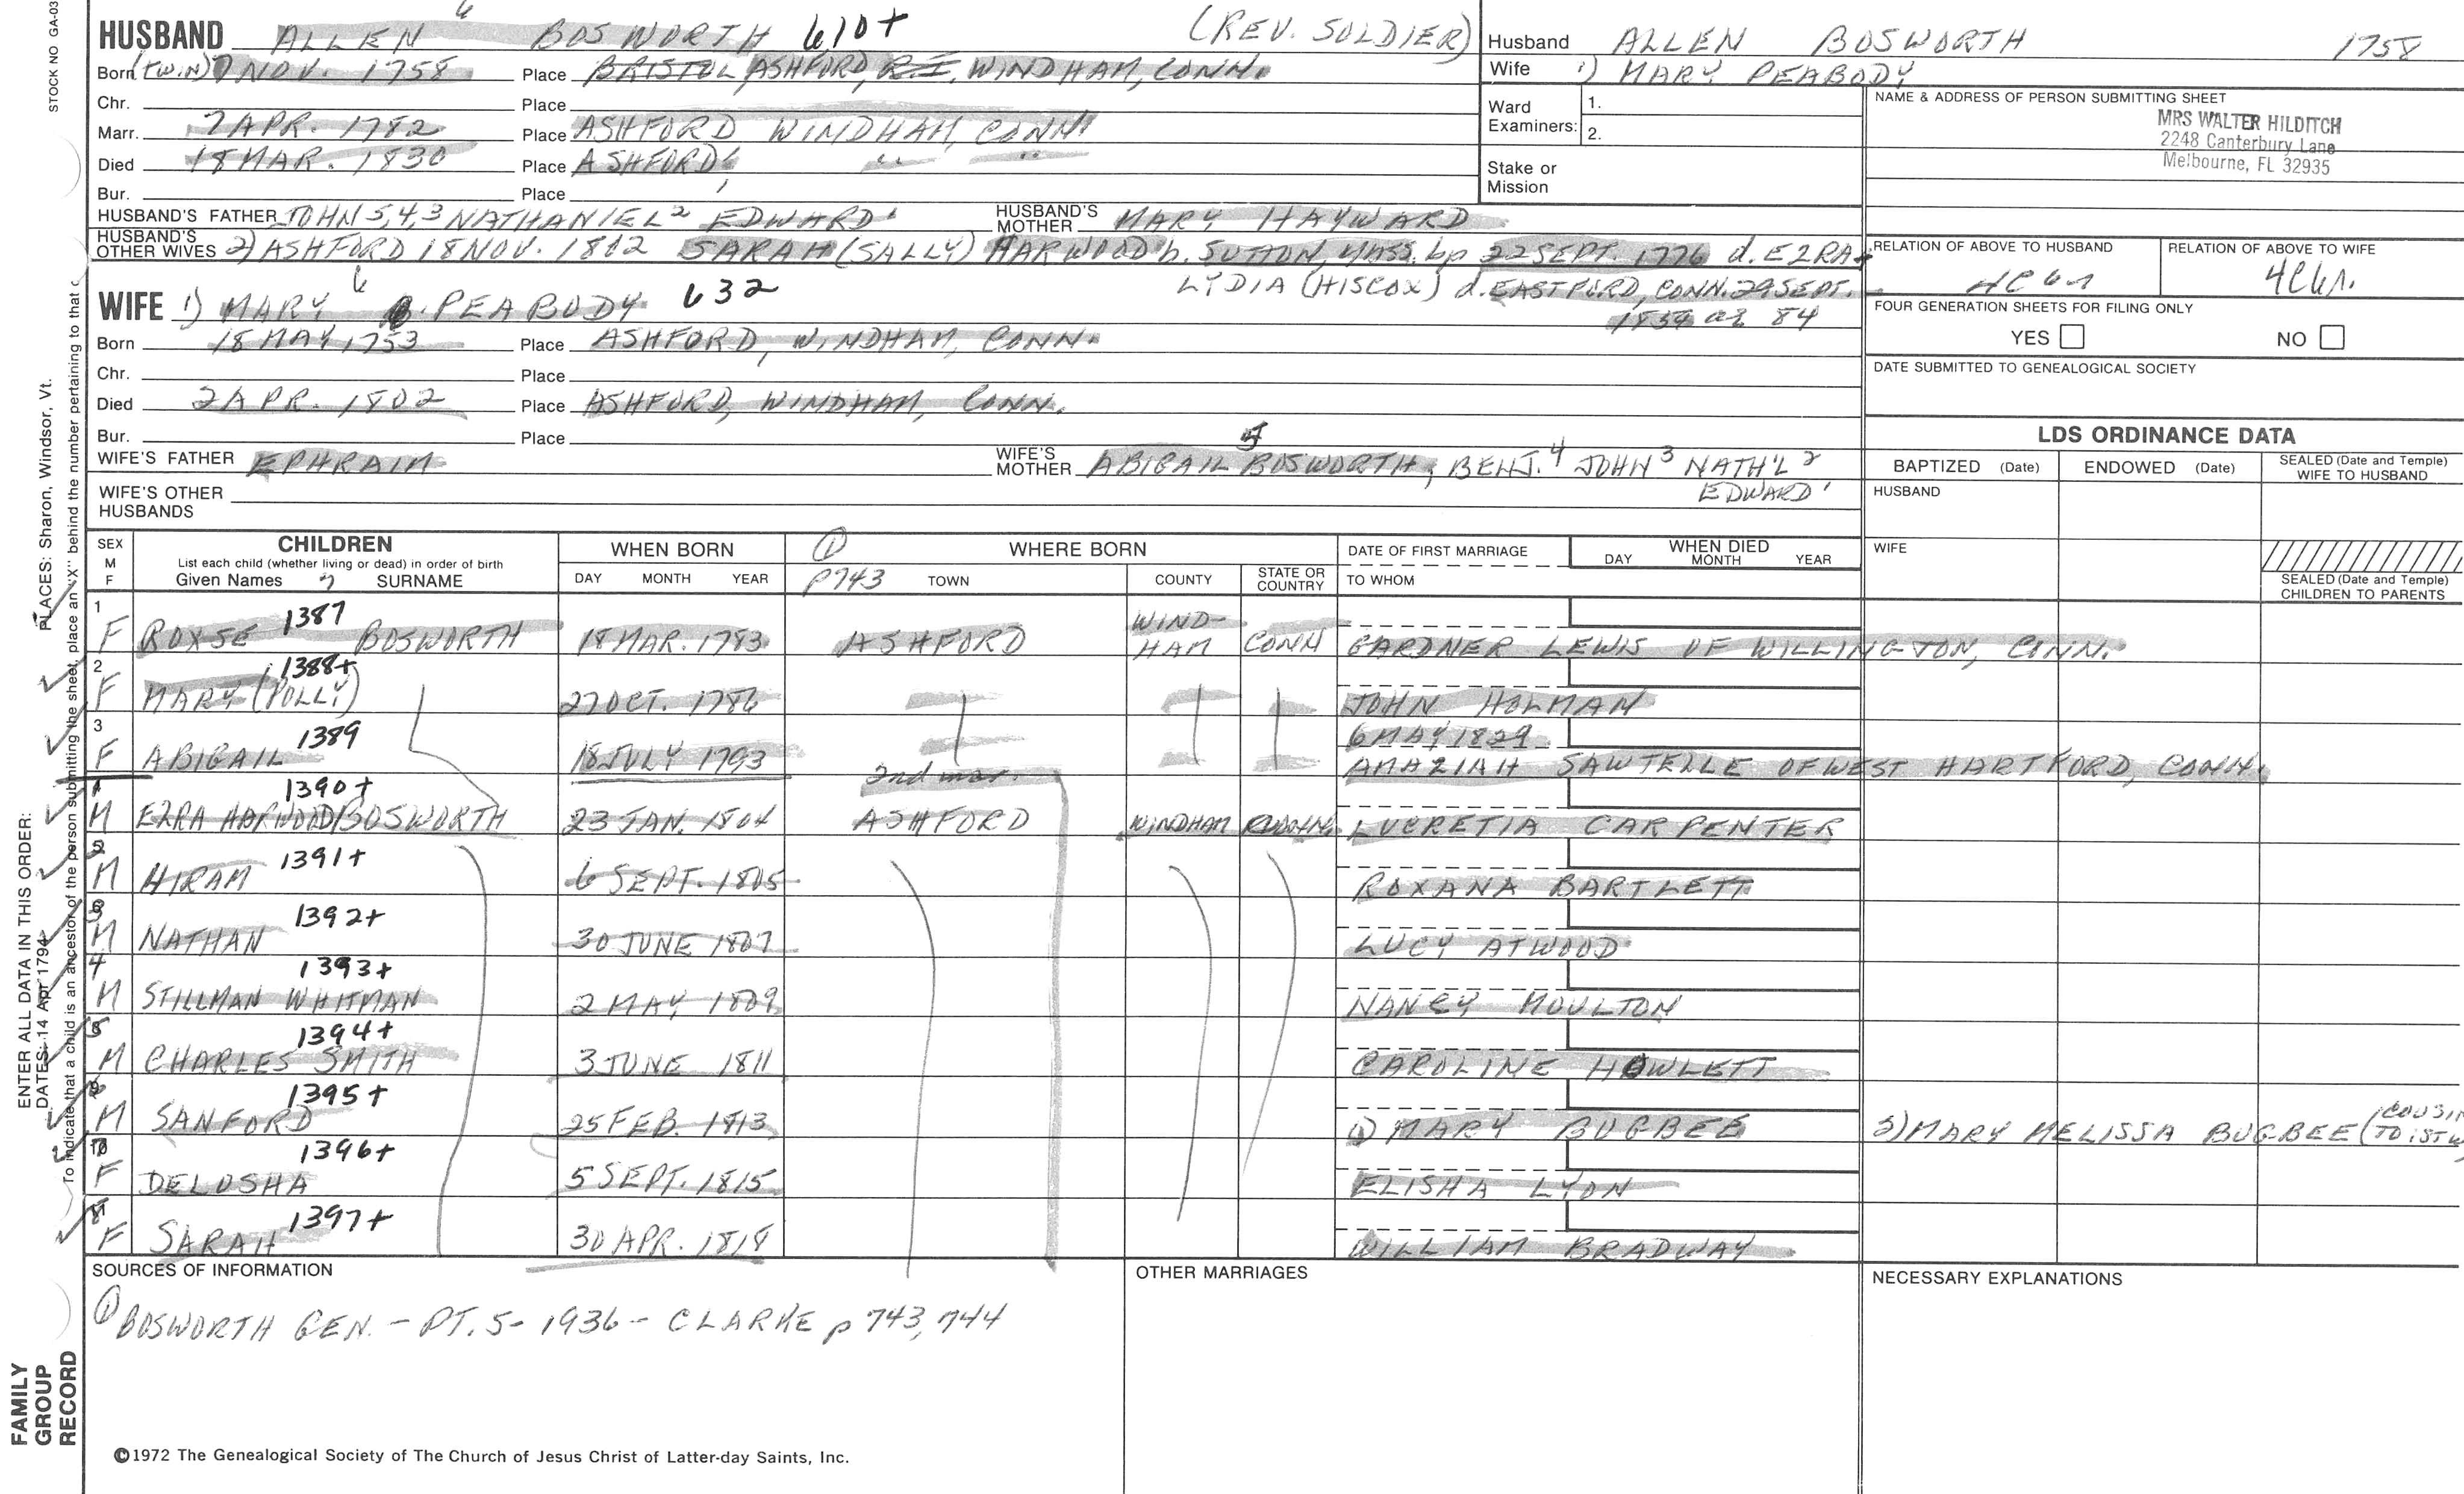 STOCK NO GA-03
HUSBAND ALLEN 6 BOSWORTH 610+ (REV. SOLDIER)
Born (TWIN) 7 NOV. 1758 Place BRISTOL, ASHFORD, R.I., WINDHAM, CONN.
Chr. Place
Marr. 7 APR. 1782 Place ASHFORD WINDHAM, CONN.
Died 18 MAR. 1830 Place ASHFORD, " "
Bur. Place
HUSBAND'S FATHER JOHN 5,4,3 NATHANIEL 2 EDWARD 1 HUSBAND'S MOTHER MARY HAYWARD
HUSBAND'S OTHER WIVES 2) ASHFORD 18 NOV. 1802 SARAH (SALLY) HARWOOD b. SUTTON, MASS. bp 22 SEPT. 1776 d. EZRA +
LYDIA (HISCOX) d. EASTFORD, CONN. 29 SEPT.
1859 ae 84
WIFE 1) MARY 6 PEABODY 632
Born 18 MAY 1753 Place ASHFORD, WINDHAM, CONN.
Chr. Place
Died 2 APR. 1802 Place ASHFORD, WINDHAM, CONN.
Bur. Place
WIFE'S FATHER EPHRAIM WIFE'S MOTHER ABIGAIL 5 BOSWORTH, BENJ. 4 JOHN 3 NATH'L 2
EDWARD 1
WIFE'S OTHER HUSBANDS
Husband ALLEN BOSWORTH 1758
Wife 1) MARY PEABODY
Ward Examiners: 1.
2.
Stake or Mission
NAME & ADDRESS OF PERSON SUBMITTING SHEET
MRS WALTER HILDITCH
2248 Canterbury Lane
Melbourne, FL 32935
RELATION OF ABOVE TO HUSBAND RELATION OF ABOVE TO WIFE
FOUR GENERATION SHEETS FOR FILING ONLY
YES NO
DATE SUBMITTED TO GENEALOGICAL SOCIETY
LDS ORDINANCE DATA
BAPTIZED (Date) ENDOWED (Date) SEALED (Date and Temple) WIFE TO HUSBAND
HUSBAND
WIFE
SEALED (Date and Temple) CHILDREN TO PARENTS
SEX M F CHILDREN WHEN BORN 1 WHERE BORN DATE OF FIRST MARRIAGE WHEN DIED
List each child (whether living or dead) in order of birth
Given Names 7 SURNAME DAY MONTH YEAR P743 TOWN COUNTY STATE OR COUNTRY TO WHOM DAY MONTH YEAR
1 F ROXSE 1387 BOSWORTH 18 MAR. 1783 ASHFORD WIND-HAM CONN GARDNER LEWIS OF WILLINGTON, CONN.
2 F MARY (POLLY) 1388+ 27 OCT. 1786 JOHN HOLMAN
3 F ABIGAIL 1389 18 JULY 1793 6 MAY 1829 AMAZIAH SAWTELLE OF WEST HARTFORD, CONN.
2nd mar.
M EZRA HARWOOD BOSWORTH 1390+ 23 JAN. 1804 ASHFORD WINDHAM CONN. LUCRETIA CARPENTER
M HIRAM 1391+ 6 SEPT. 1805 ROXANA BARTLETT
M NATHAN 1392+ 30 JUNE 1807 LUCY ATWOOD
M STILLMAN WHITMAN 1393+ 2 MAY 1809 NANCY MOULTON
M CHARLES SMITH 1394+ 3 JUNE 1811 CAROLINE HOWLETT
M SANFORD 1395+ 25 FEB. 1813 1) MARY BUGBEE 2) MARY MELISSA BUGBEE (COUSIN TO 1ST W
F DELOSHA 1396+ 5 SEPT. 1815 ELISHA LYON
F SARAH 1397+ 30 APR. 1818 WILLIAM BRADWAY
SOURCES OF INFORMATION OTHER MARRIAGES NECESSARY EXPLANATIONS
1 BOSWORTH GEN. - PT. 5 - 1936 - CLARKE p 743, 744
©1972 The Genealogical Society of The Church of Jesus Christ of Latter-day Saints, Inc.
FAMILY GROUP RECORD
ENTER ALL DATA IN THIS ORDER:
DATES: 14 Apr 1794
PLACES: Sharon, Windsor, Vt.
To indicate that a child is an ancestor of the person submitting the sheet, place an "X" behind the number pertaining to that